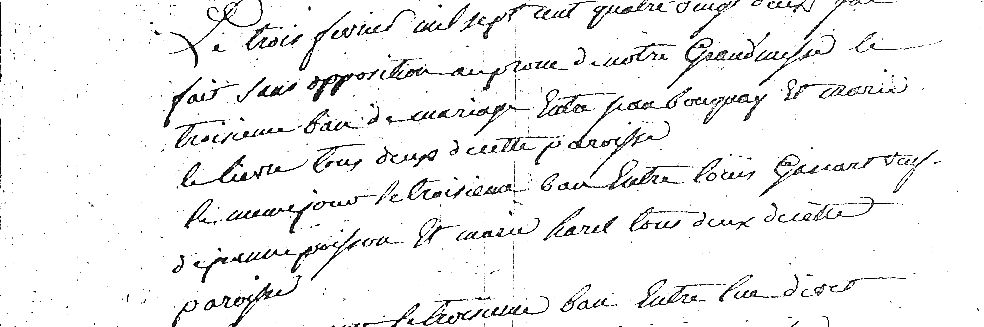 Le trois fevrier mil sept cent quatre vingt deux jai
fait sans opposition au prone de notre Grandmesse le
troisieme ban de mariage Entre jean bouquay Et marie
le lievre tous deux de cette paroisse
le meme jour le troisieme ban Entre louis Gassart veuf
de jeanne poisson Et marie harel tous deux de cette
paroisse
le troisieme ban Entre